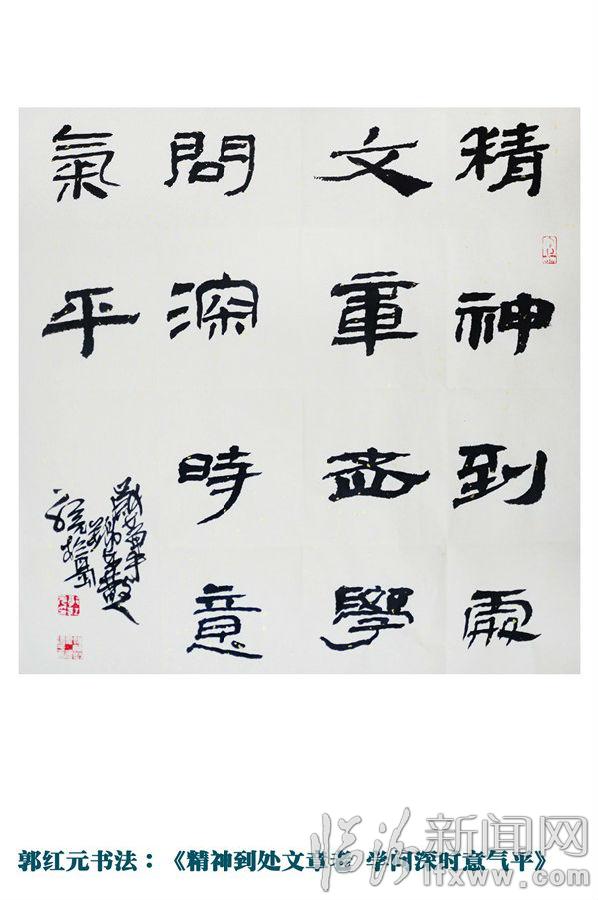 精神到處
文章老學
問深時意
氣平
郭红元书法：《精神到处文章老 学问深时意气平》
临汾新闻网
lfxww.com